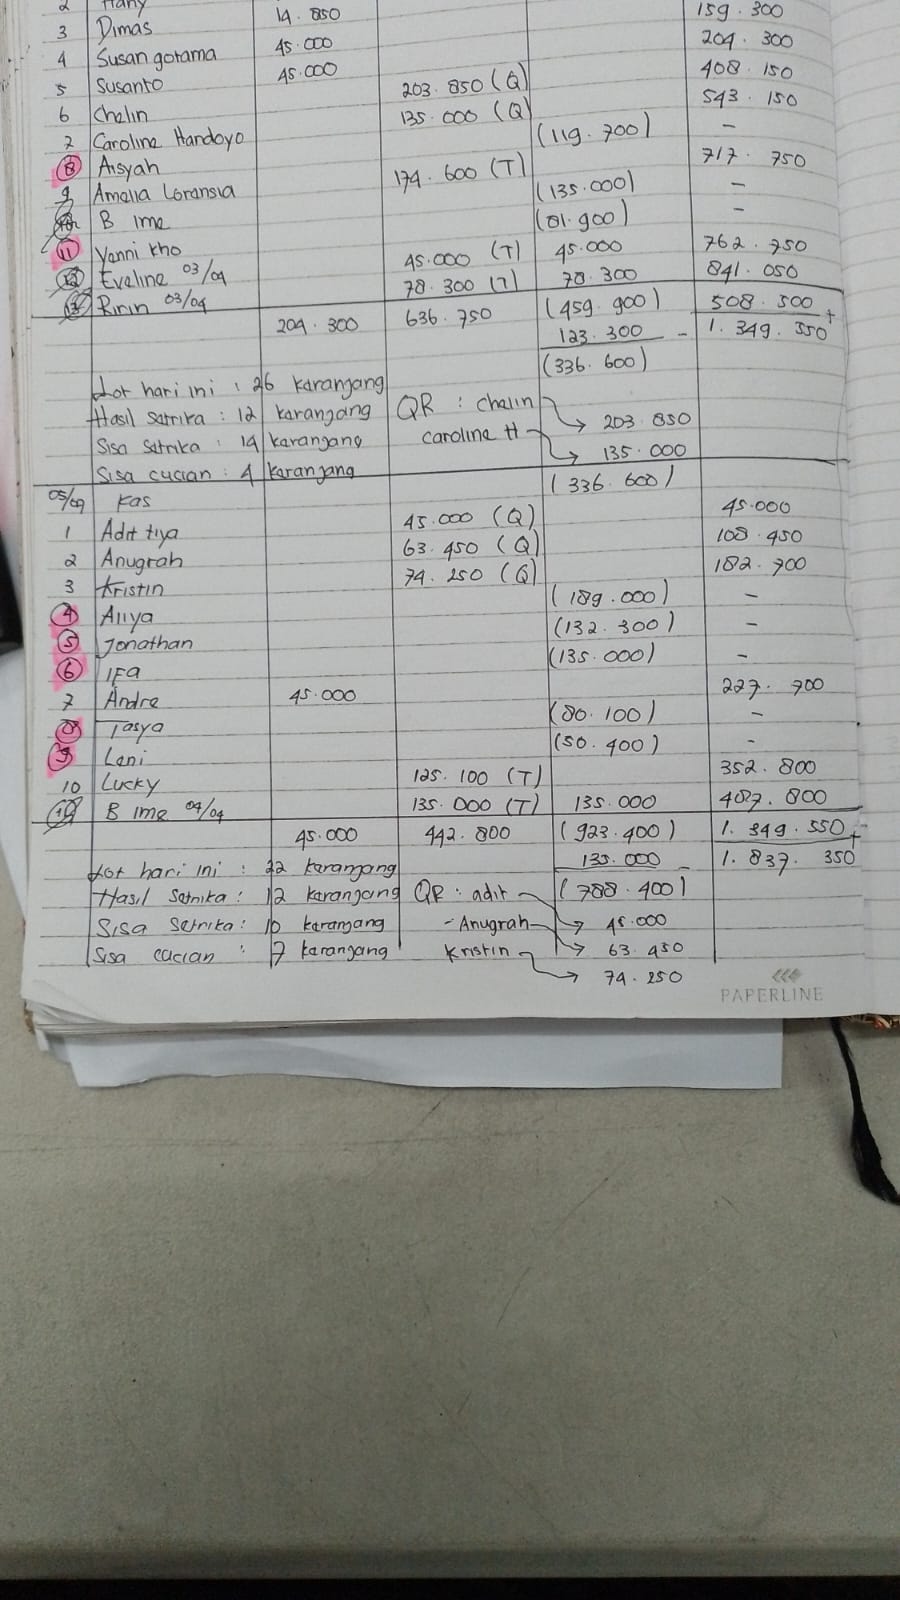 2 Hany
3 Dimas 14.850 159.300
4 Susan gotama 45.000 204.300
5 Susanto 45.000 408.150
6 Chalin 203.850 (Q) 543.150
7 Caroline Handoyo 135.000 (Q)
8 Aisyah (119.700) -
9 Amelia Loransia 174.600 (T) 717.750
B Ime (135.000) -
11 Yanni Kho (81.900) -
12 Eveline 03/04 45.000 (T) 45.000 762.750
13 Ririn 03/04 78.300 (T) 78.300 841.050
204.300 636.750 (459.900) 508.500 +
123.300 - 1.349.550
(336.600)
Lot hari ini : 26 karangjang
Hasil satrika : 12 karangjang QR : chalin → 203.850
Sisa satrika : 14 karangjang caroline H → 135.000
Sisa cucian : 4 karangjang
05/04 Kas (336.600)
1 Adit tiya 45.000 (Q) 45.000
2 Anugrah 63.450 (Q) 108.450
3 Kristin 74.250 (Q) 182.700
4 Aliya (189.000) -
5 Jonathan (132.300) -
6 IFa (135.000) -
7 Andre 45.000 227.700
8 Tasya (80.100) -
9 Leni (50.400) -
10 Lucky 125.100 (T) 352.800
11 B Ime 04/04 135.000 (T) 135.000 487.800
45.000 442.800 (923.400) 1.349.550 +
135.000 - 1.837.350
Lot hari ini : 22 karangjang (788.400)
Hasil Satrika : 12 karangjang QR : adit → 45.000
Sisa Satrika : 10 karangjang - Anugrah → 63.450
Sisa cucian : 7 karangjang Kristin → 74.250
PAPERLINE